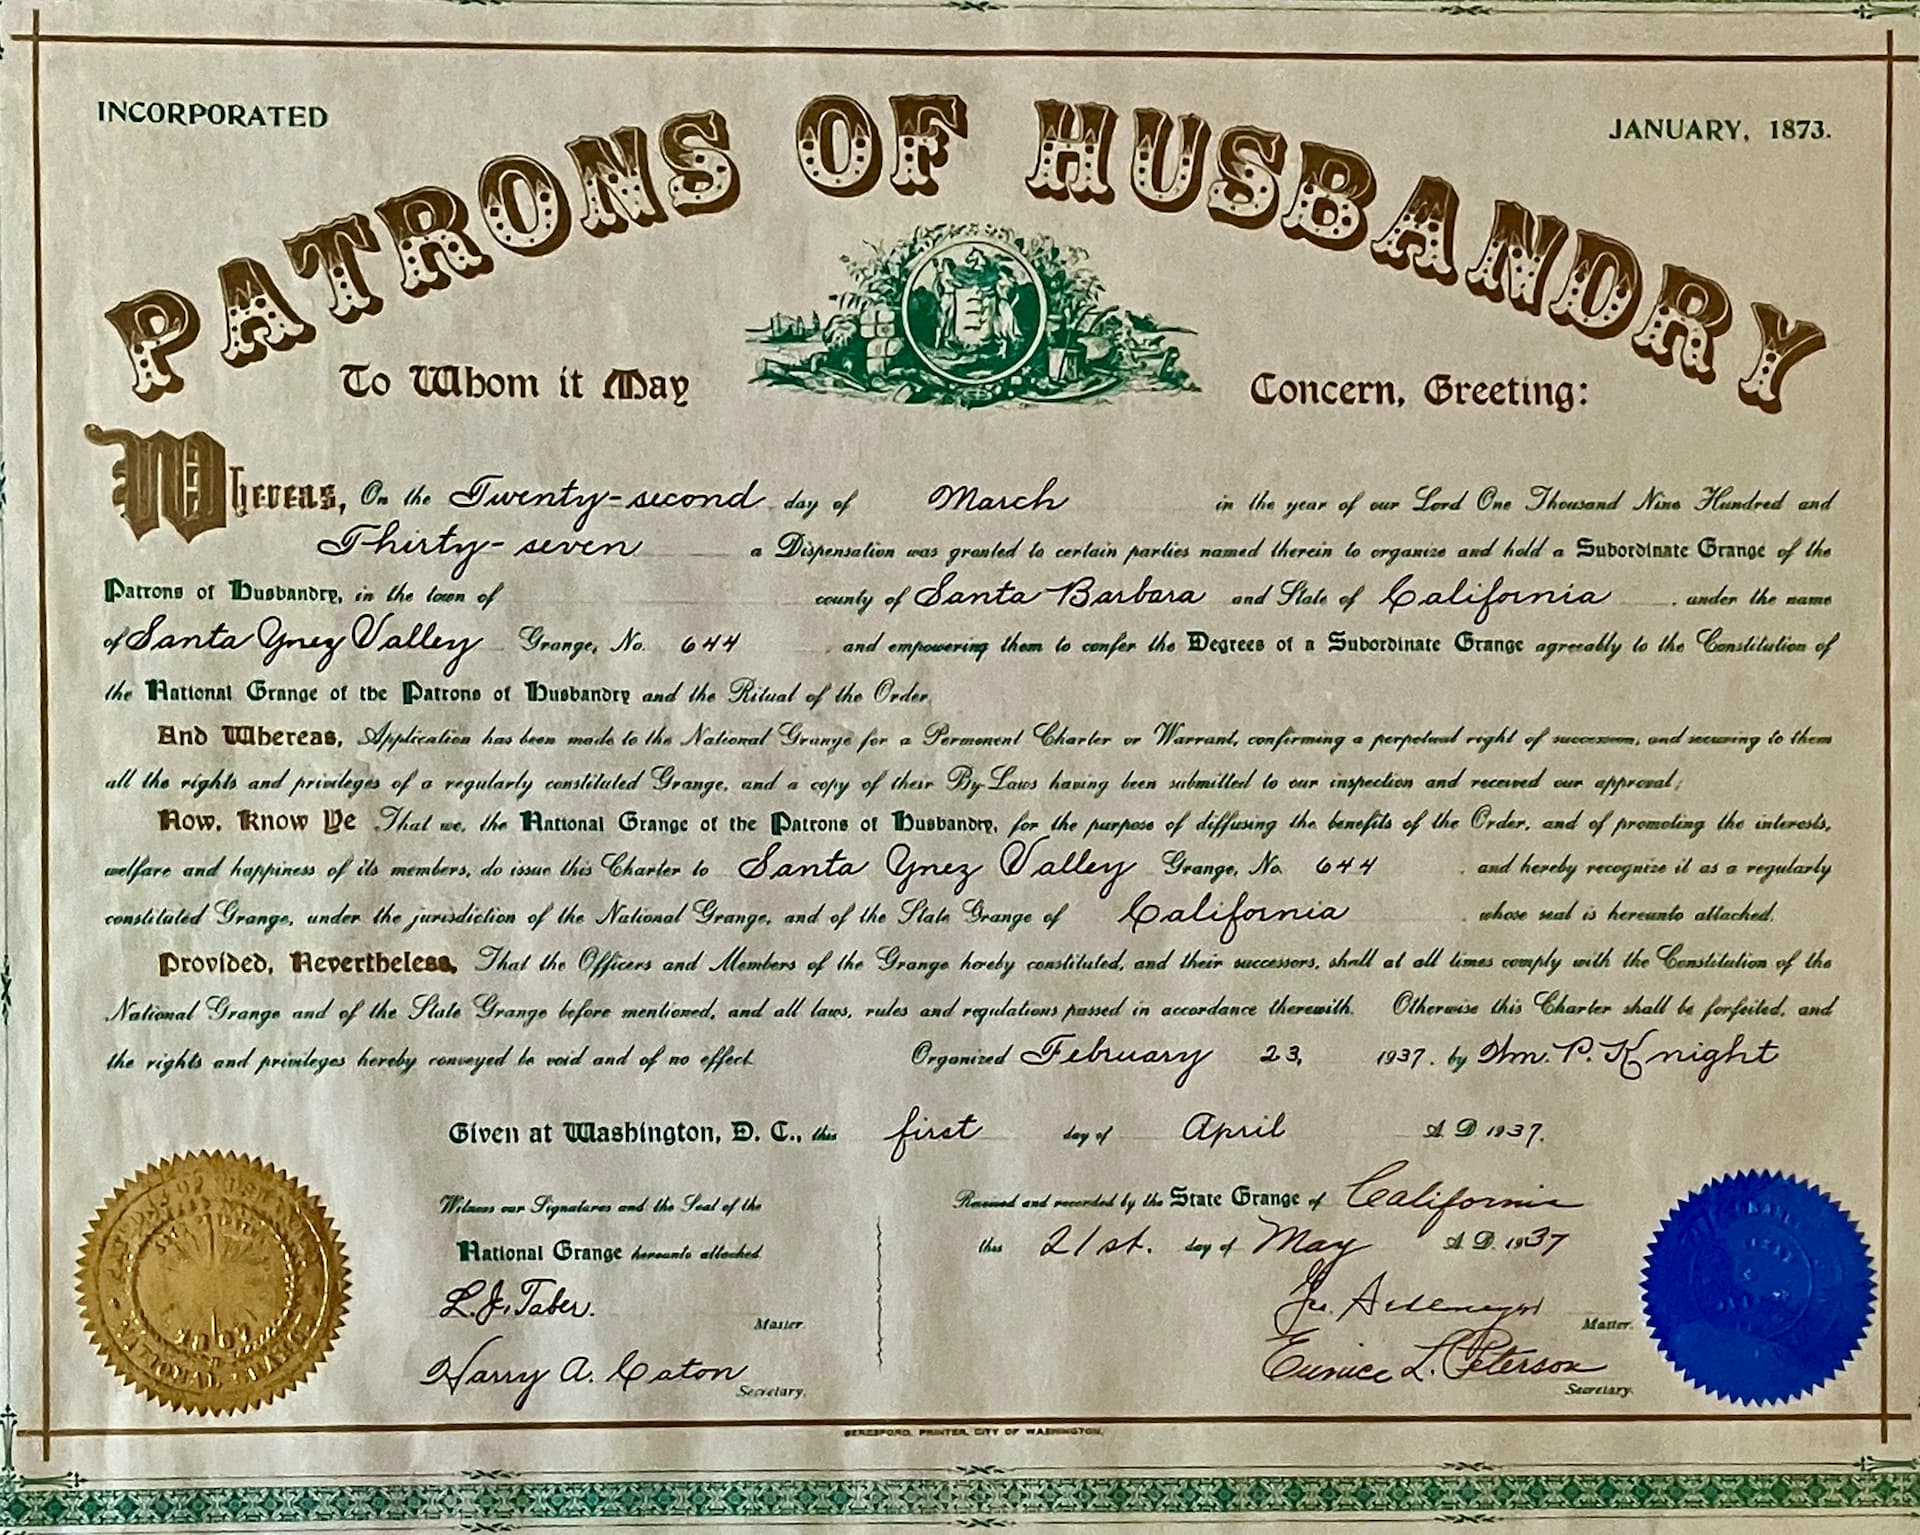 INCORPORATED
JANUARY, 1873.
PATRONS OF HUSBANDRY
To Whom it May Concern, Greeting:
Whereas, On the Twenty-second day of March in the year of our Lord One Thousand Nine Hundred and
Thirty-seven a Dispensation was granted to certain parties named therein to organize and hold a Subordinate Grange of the
Patrons of Husbandry, in the town of county of Santa Barbara and State of California, under the name
of Santa Ynez Valley Grange, No. 644, and empowering them to confer the Degrees of a Subordinate Grange agreeably to the Constitution of
the National Grange of the Patrons of Husbandry and the Ritual of the Order.
And Whereas, Application has been made to the National Grange for a Permanent Charter or Warrant, confirming a perpetual right of succession, and securing to them
all the rights and privileges of a regularly constituted Grange, and a copy of their By-Laws having been submitted to our inspection and received our approval;
Now, Know Ye That we, the National Grange of the Patrons of Husbandry, for the purpose of diffusing the benefits of the Order, and of promoting the interests,
welfare and happiness of its members, do issue this Charter to Santa Ynez Valley Grange, No. 644, and hereby recognize it as a regularly
constituted Grange, under the jurisdiction of the National Grange, and of the State Grange of California, whose seal is hereunto attached.
Provided, Nevertheless, That the Officers and Members of the Grange hereby constituted, and their successors, shall at all times comply with the Constitution of the
National Grange and of the State Grange before mentioned, and all laws, rules and regulations passed in accordance therewith. Otherwise this Charter shall be forfeited, and
the rights and privileges hereby conveyed be void and of no effect. Organized February 23, 1937. by Wm. P. Knight
Given at Washington, D. C., this first day of April A. D. 1937.
Witness our Signatures and the Seal of the
National Grange hereunto attached.
L. J. Taber.
Master.
Harry A. Caton
Secretary.
Received and recorded by the State Grange of California
this 21st. day of May A. D. 1937
Master.
Eunice L. Peterson
Secretary.
NATIONAL
BERESFORD, PRINTER, CITY OF WASHINGTON.